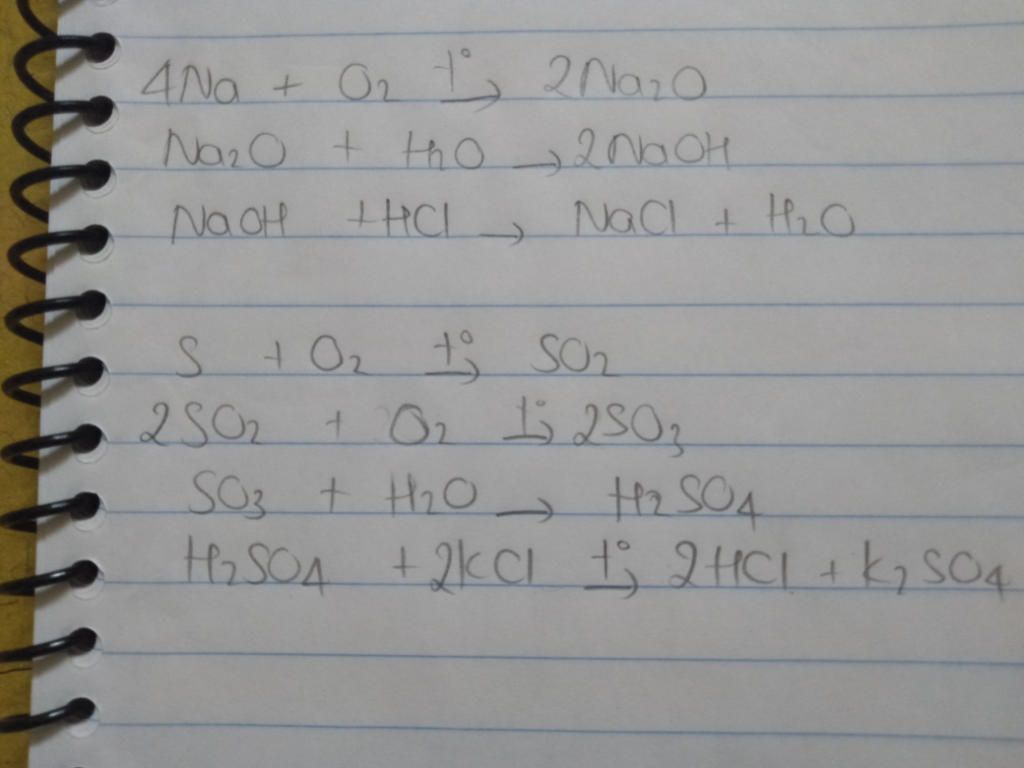 4Na + O₂ →(t°) 2Na₂O
Na₂O + H₂O → 2NaOH
NaOH + HCl → NaCl + H₂O
S + O₂ →(t°) SO₂
2SO₂ + O₂ →(t°) 2SO₃
SO₃ + H₂O → H₂SO₄
H₂SO₄ + 2KCl →(t°) 2HCl + K₂SO₄